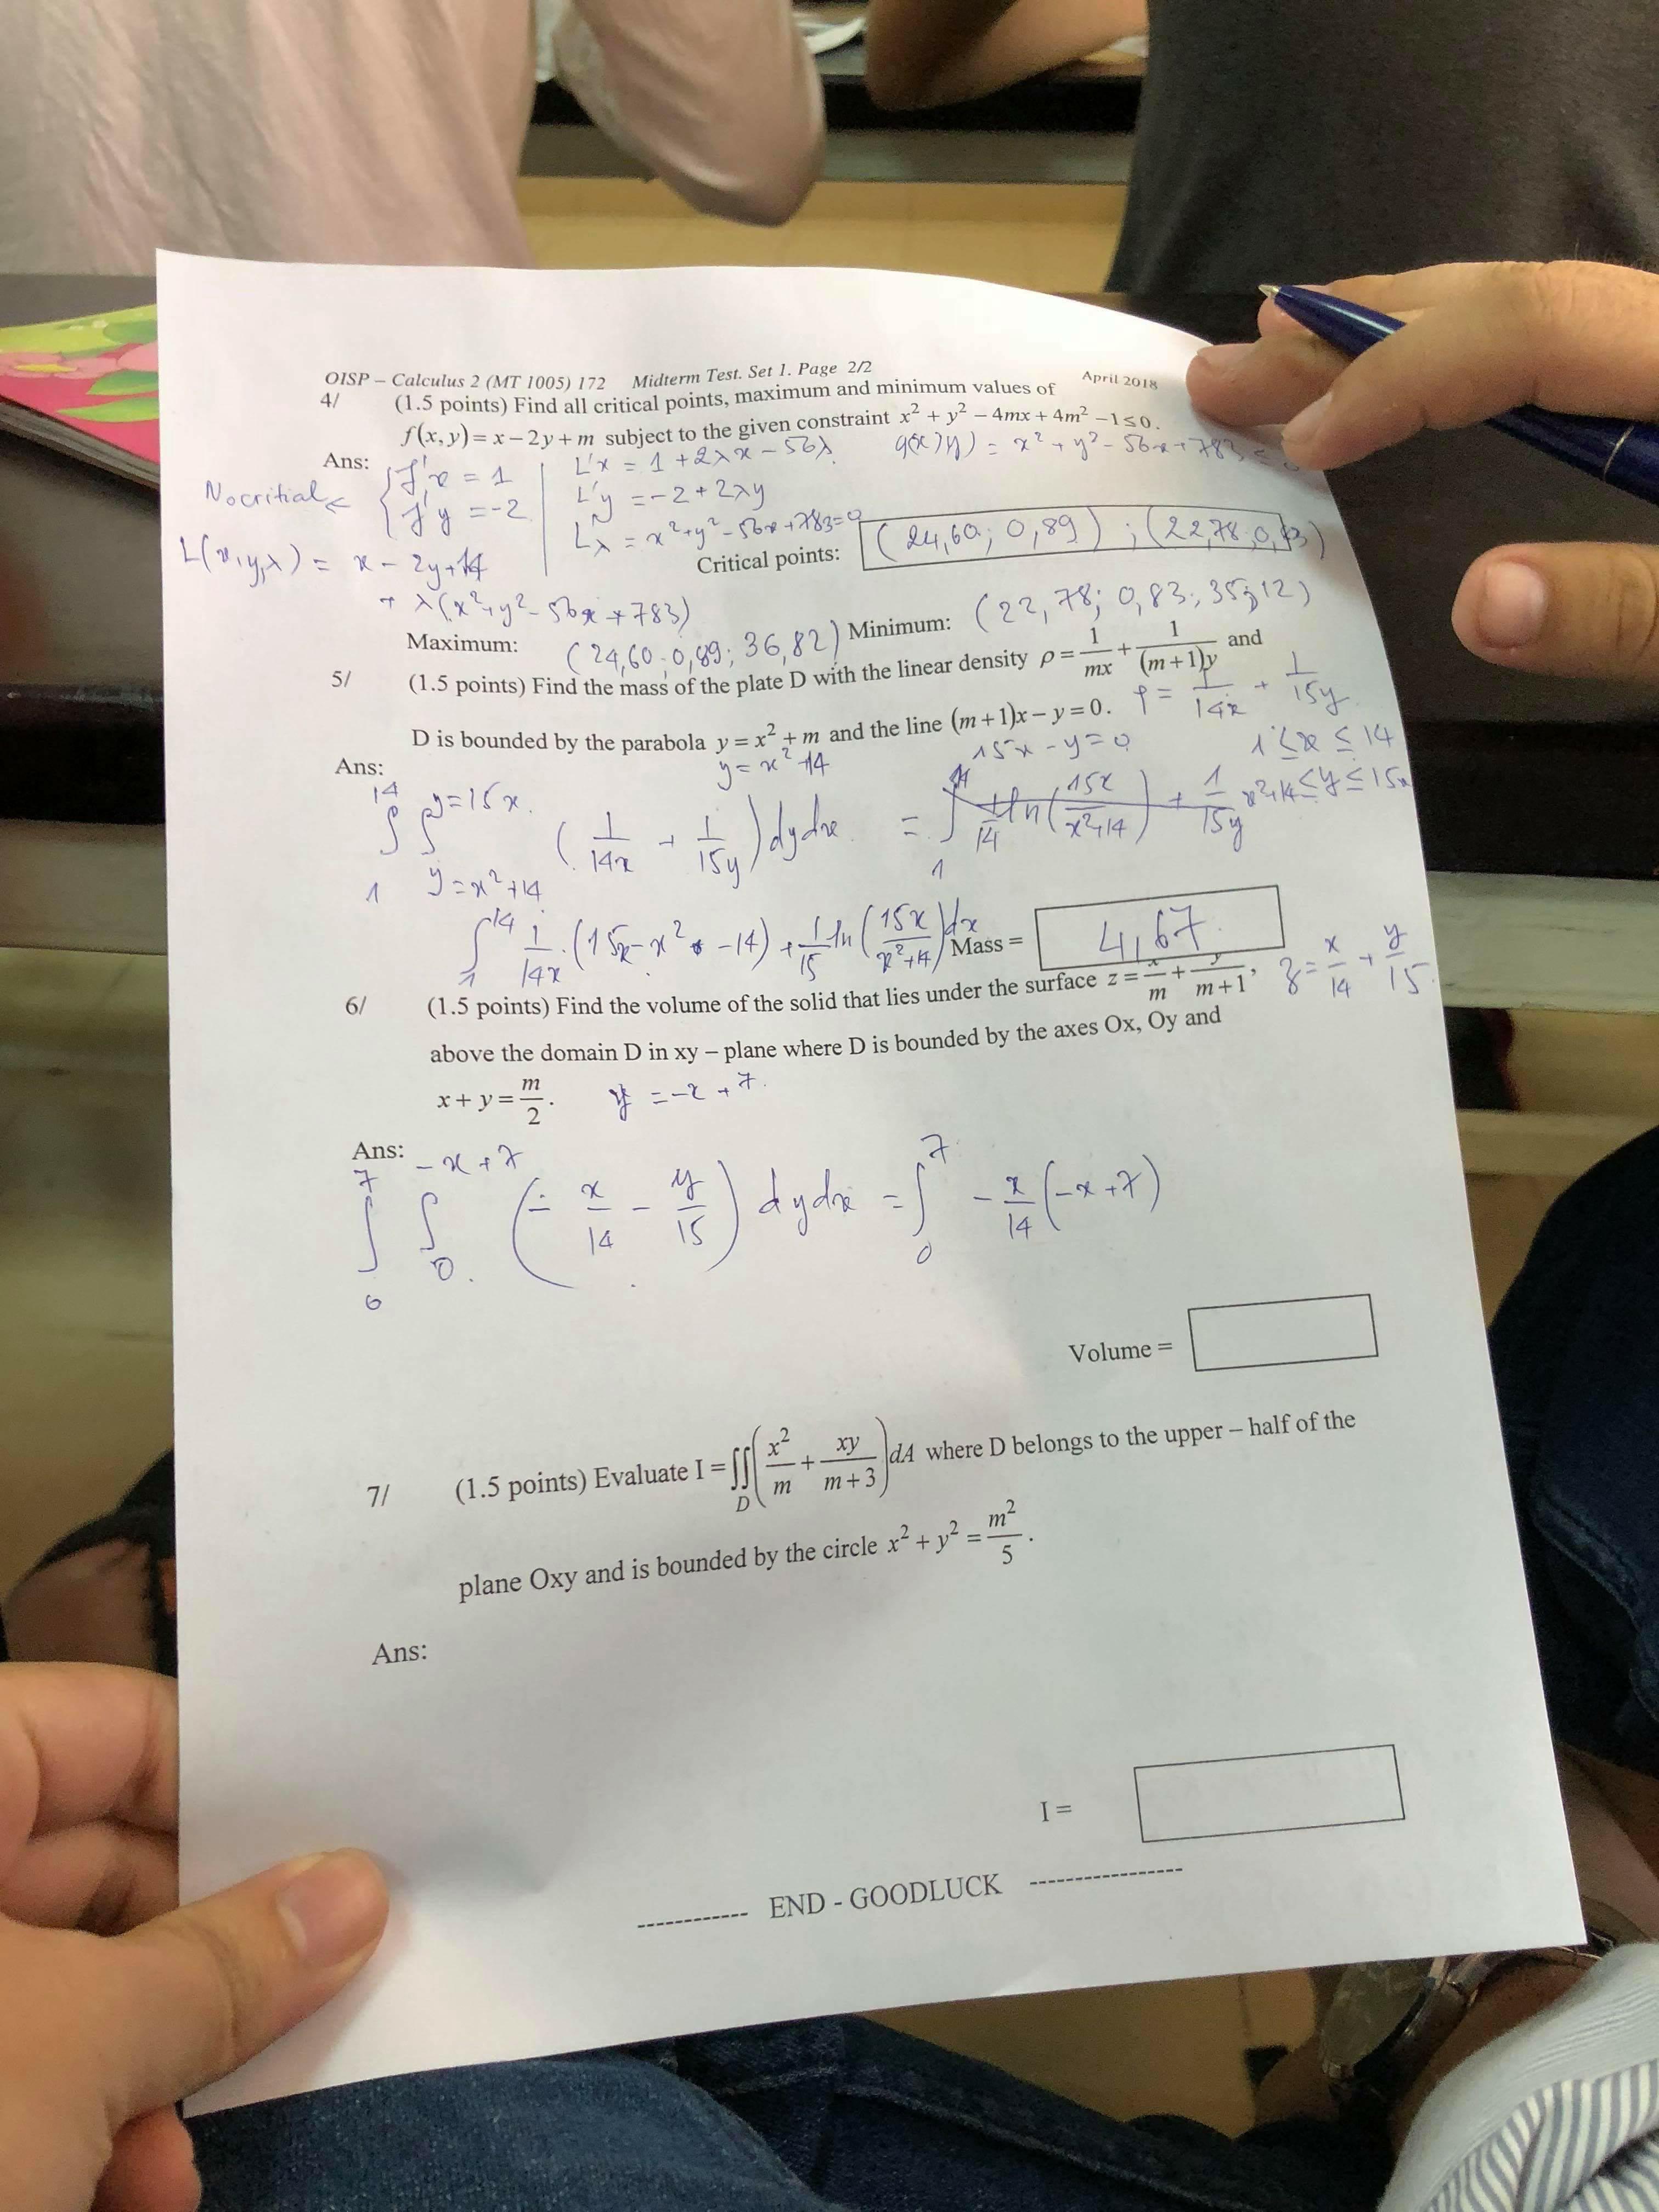 OISP – Calculus 2 (MT 1005) 172 Midterm Test. Set 1. Page 2/2 April 2018
4/ (1.5 points) Find all critical points, maximum and minimum values of
f(x, y) = x − 2y + m subject to the given constraint x² + y² − 4mx + 4m² − 1 ≤ 0.
Ans: f'x = 1 L'x = 1 + 2λx − 56λ g(x,y) = x² + y² − 56x + 783 ≤ 0
No critial ← f'y = −2 L'y = −2 + 2λy
L'λ = x² + y² − 56x + 783 = 0
L(x,y,λ) = x − 2y + 14
+ λ(x² + y² − 56x + 783)
Critical points: (24,60; 0,89) ; (22,78; 0,83)
Maximum: (24,60; 0,89; 36,82) Minimum: (22,78; 0,83; 35,12)
5/ (1.5 points) Find the mass of the plate D with the linear density ρ = 1/mx + 1/(m+1)y and
ρ = 1/14x + 1/15y
D is bounded by the parabola y = x² + m and the line (m+1)x − y = 0.
Ans: y = x² + 14 15x − y = 0 1 ≤ x ≤ 14
x² + 14 ≤ y ≤ 15x
∫₁¹⁴ ∫_{y=x²+14}^{y=15x} (1/14x + 1/15y) dydx = ∫₁¹⁴
∫₁¹⁴ 1/14x · (15x − x² − 14) + 1/15 ln(15x/(x²+14)) dx
Mass = 4,67
6/ (1.5 points) Find the volume of the solid that lies under the surface z = x/m + y/(m+1), z = x/14 + y/15
above the domain D in xy – plane where D is bounded by the axes Ox, Oy and
x + y = m/2. y = −x + 7.
Ans:
∫₀⁷ ∫₀^{−x+7} (− x/14 − y/15) dydx = ∫₀⁷ − x/14 (−x + 7)
Volume =
7/ (1.5 points) Evaluate I = ∬_D (x²/m + xy/(m+3)) dA where D belongs to the upper – half of the
plane Oxy and is bounded by the circle x² + y² = m²/5.
Ans:
I =
------------ END - GOODLUCK -----------------